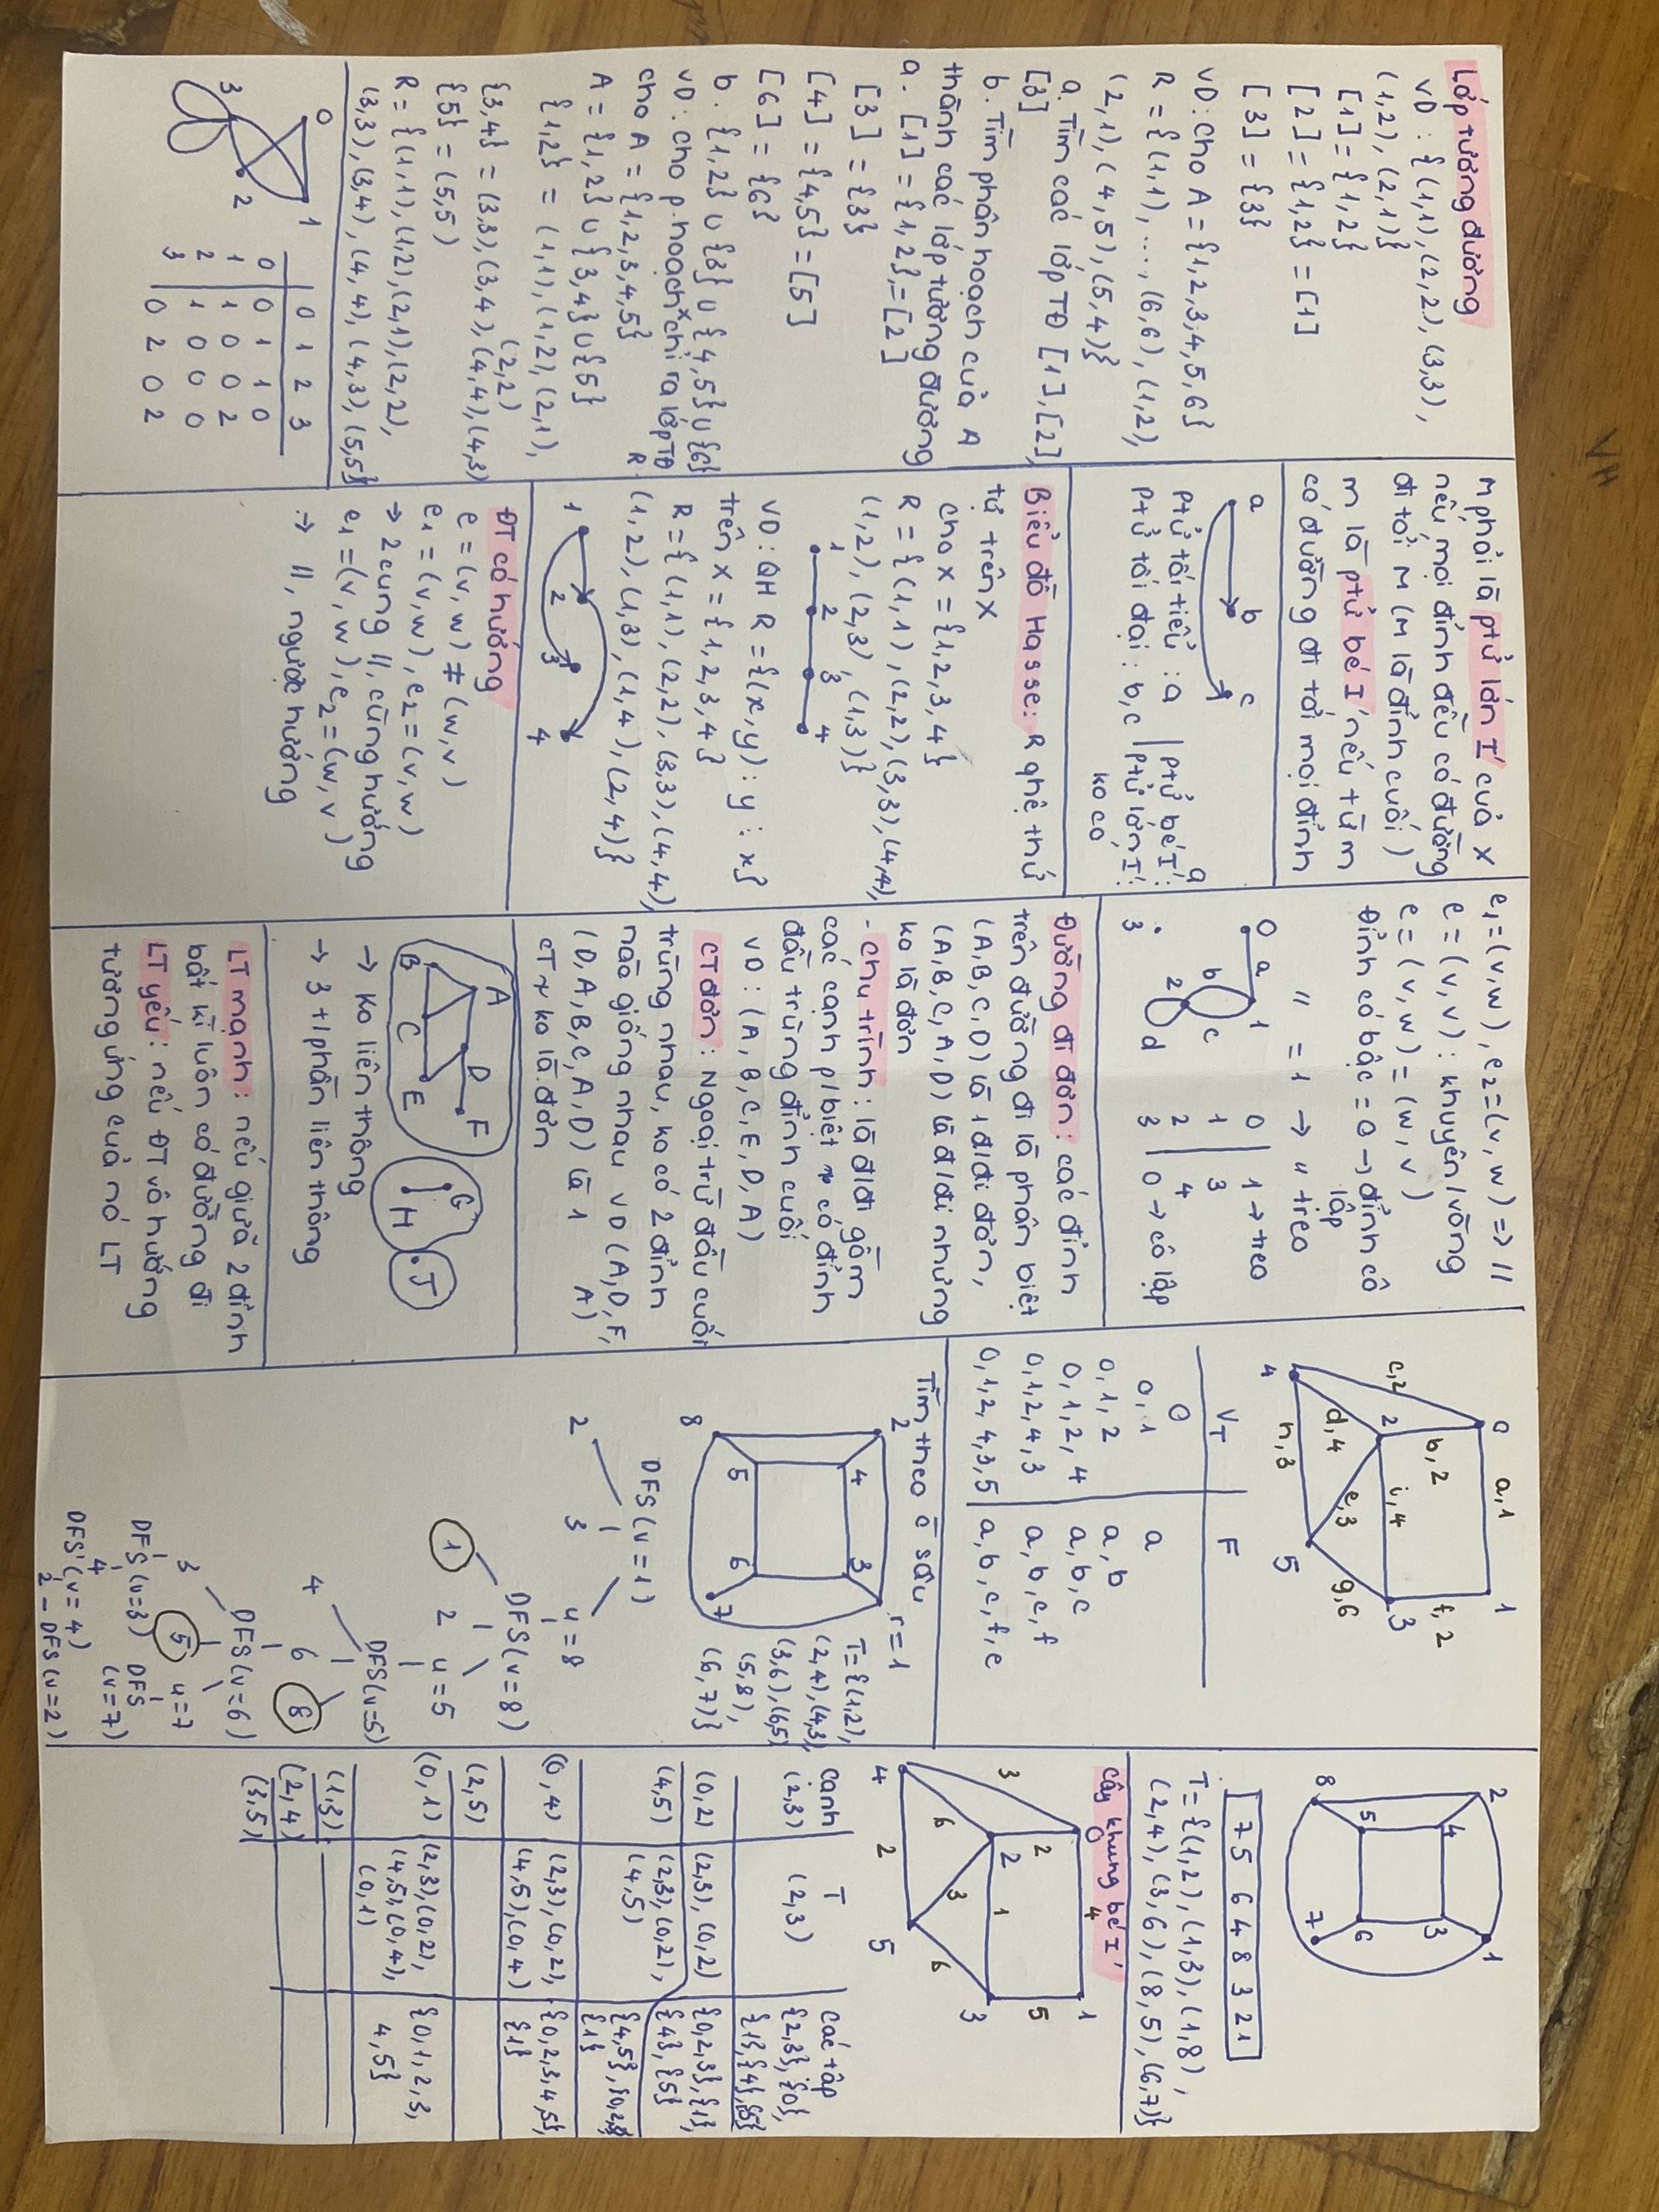 VH
Lớp tương đương
VD : {(1,1),(2,2),(3,3),
(1,2),(2,1)}
[1] = {1,2}
[2] = {1,2} = [1]
[3] = {3}
VD: Cho A = {1,2,3,4,5,6}
R = {(1,1), ..., (6,6), (1,2),
(2,1), (4,5), (5,4)}
a. Tìm các lớp TĐ [1],[2],
[3]
b. Tìm phân hoạch của A
thành các lớp tương đương
a. [1] = {1,2},=[2]
[3] = {3}
[4] = {4,5} = [5]
[6] = {6}
b. {1,2} ∪ {3} ∪ {4,5} ∪ {6}
VD: Cho p.hoạch chỉ ra lớp TĐ
R
Cho A = {1,2,3,4,5}
A = {1,2} ∪ {3,4} ∪ {5}
{1,2} = (1,1),(1,2),(2,1),
(2,2)
{3,4} = (3,3),(3,4),(4,4),(4,3)
{5} = (5,5)
R = {(1,1),(1,2),(2,1),(2,2),
(3,3),(3,4),(4,4),(4,3),(5,5)}
0 1
3 2
0 1 2 3
0 0 1 1 0
1 1 0 0 2
2 1 0 0 0
3 0 2 0 2
M phải là ptử lớn I' của X
nếu mọi đỉnh đều có đường
đi tới M (M là đỉnh cuối)
m là ptử bé I' nếu từ m
có đường đi tới mọi đỉnh
a b c
Ptử tối tiểu : a | Ptử bé I': a
Ptử tối đại : b, c | Ptử lớn I':
ko có
Biểu đồ Hasse: R qhệ thứ
tự trên X
Cho X = {1,2,3,4}
R = {(1,1),(2,2),(3,3),(4,4),
(1,2),(2,3),(1,3)}
1 2 3 4
VD: QH R = {(x,y): y ⋮ x}
trên X = {1,2,3,4}
R = {(1,1),(2,2),(3,3),(4,4),
(1,2),(1,3),(1,4),(2,4)}
1 2 3 4
ĐT có hướng
e = (v,w) ≠ (w,v)
e1 = (v,w), e2 = (v,w)
→ 2 cung //, cùng hướng
e1 = (v,w), e2 = (w,v)
→ //, ngược hướng
e1 = (v,w), e2 = (v,w) => //
e = (v,v) : khuyên/vòng
e = (v,w) = (w,v)
Đỉnh có bậc = 0 → đỉnh cô
lập
" = 1 → " treo
0 a 1
b c
2
d
3
0 | 1 → treo
1 | 3
2 | 4
3 | 0 → cô lập
Đường đi đơn: các đỉnh
trên đường đi là phân biệt
(A,B,C,D) là 1 đ/đi đơn,
(A,B,C,A,D) là đ/đi nhưng
ko là đơn
- Chu trình : là đ/đi gồm
các cạnh p/biệt có đỉnh
đầu trùng đỉnh cuối
VD : (A,B,C,E,D,A)
CT đơn: Ngoại trừ đầu cuối
trùng nhau, ko có 2 đỉnh
nào giống nhau VD (A,D,F,
A)
(D,A,B,C,A,D) là 1
CT ko là đơn
A D F
B C E
G
H
J
→ Ko liên thông
→ 3 t/phần liên thông
LT mạnh: nếu giữa 2 đỉnh
bất kì luôn có đường đi
LT yếu: nếu ĐT vô hướng
tương ứng của nó LT
0 a,1 1
b,2 f,2
c,2 2 i,4 3
d,4 e,3 g,6
4 h,3 5
VT | F
0
0,1 | a
0,1,2 | a,b
0,1,2,4 | a,b,c
0,1,2,4,3 | a,b,c,f
0,1,2,4,3,5 | a,b,c,f,e
Tìm theo c sâu
2 r=1
4 3
5 6 7
8
T={(1,2),
(2,4),(4,3),
(3,6),(6,5)
(5,8),
(6,7)}
DFS(v=1)
2 3 u=8
DFS(v=8)
1 2 u=5
DFS(v=5)
4 6 8
DFS(v=6)
3 5 u=7
DFS(v=3) DFS
(v=7)
4
DFS(v=4)
2 – DFS(v=2)
2 1
4 3
5 6
8 7
7 5 6 4 8 3 2 1
T = {(1,2),(1,3),(1,8),
(2,4),(3,6),(8,5),(6,7)}
Cây khung bé I'
0 4 1
2 5
3 2 1 3
6 3 6
4 2 5
Cạnh | T | Các tập
(2,3) | (2,3) | {2,3},{0},
{1},{4},{5}
(0,2) | (2,3),(0,2) | {0,2,3},{1},
{4},{5}
(4,5) | (2,3),(0,2),
(4,5) | {4,5},{0,2,3},
{1}
(0,4) | (2,3),(0,2), | {0,2,3,4,5},
(4,5),(0,4) | {1}
(2,5)
(0,1) | (2,3),(0,2), | {0,1,2,3,
(4,5),(0,4), | 4,5}
(0,1)
(1,3)
(2,4)
(3,5)